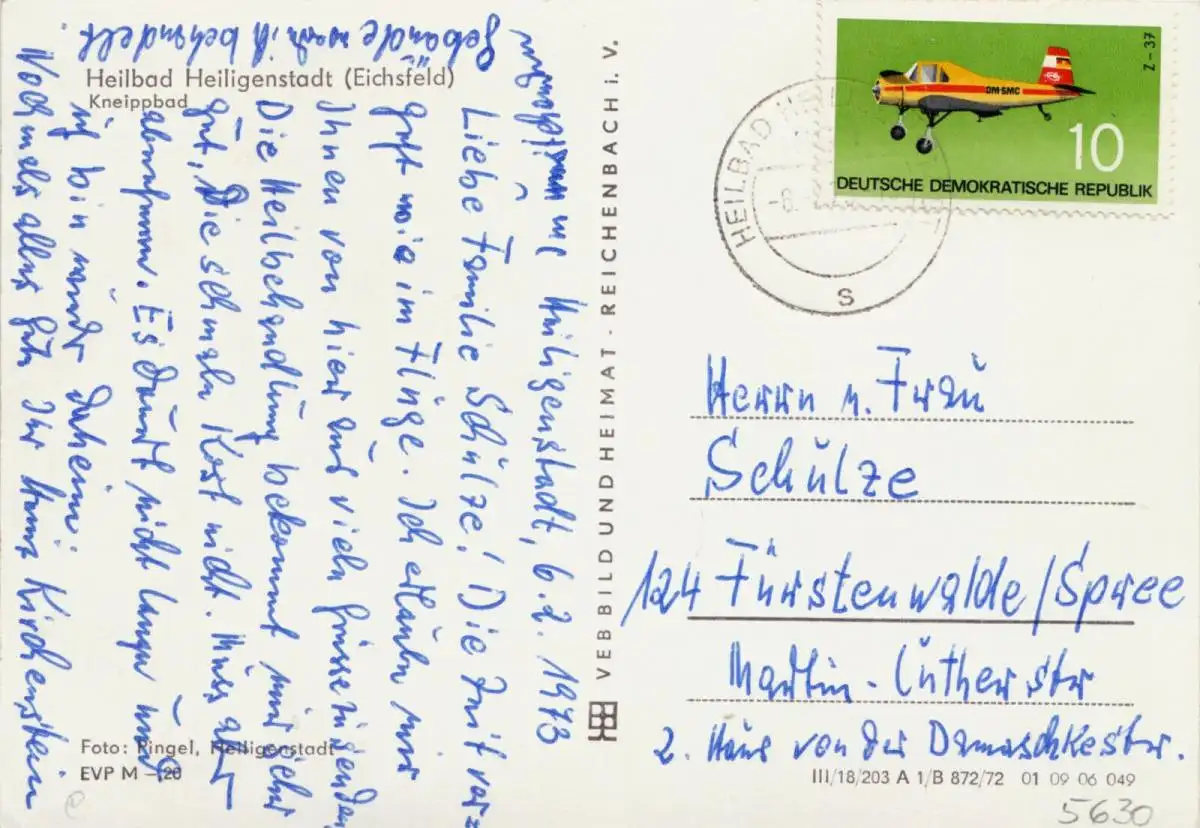 Heilbad Heiligenstadt (Eichsfeld)
Kneippbad
Heiligenstadt, 6.2.1973
Liebe Familie Schülze! Die Zeit ver-
geht wie im Fluge. Ich erlaube mir
Ihnen von hier aus viele Grüsse zu senden
Die Heilbehandlung bekommt mir sehr
gut, Die schmale Kost nicht. Muss aber
abnehmen. Es dauert nicht lange und
ich bin wieder daheim!
Nochmals alles Gute Ihr Hans Kirchenstein
Gebäude werde ich behandelt.
Foto: Ringel, Heiligenstadt
EVP M -,20
VEB BILD UND HEIMAT · REICHENBACH i. V.
HEILBAD
S
Z-37
DM-SMC
10
DEUTSCHE DEMOKRATISCHE REPUBLIK
Herrn u. Frau
Schülze
124 Fürstenwalde/Spree
Martin-Lütherstr
2. Haus von der Damaschkestr.
III/18/203 A 1/B 872/72 01 09 06 049
5630